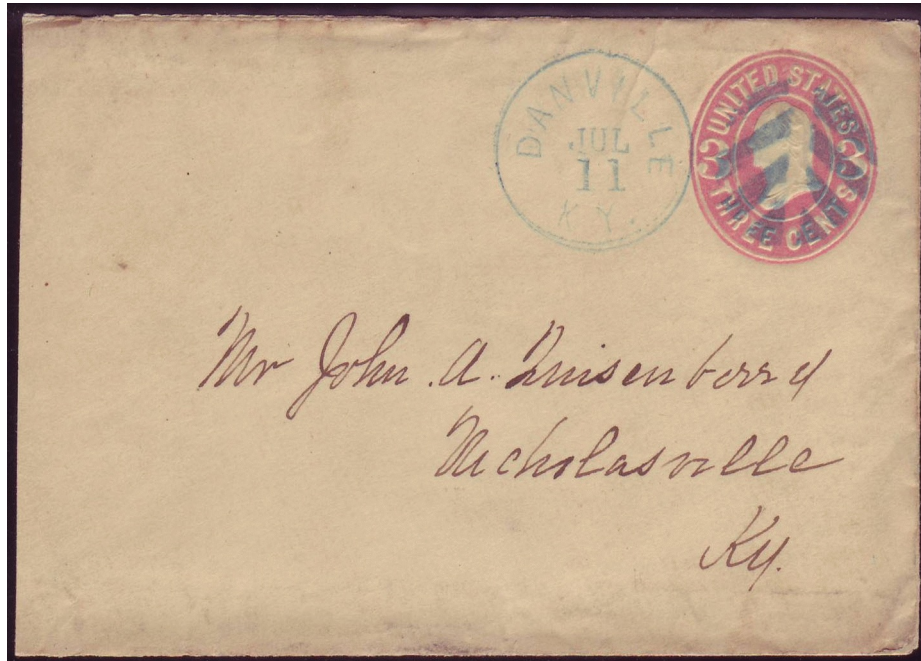 DANVILLE
JUL
11
KY.
UNITED STATES
3 3
THREE CENTS
Mr John A. Quisenberry
Nicholasville
Ky.